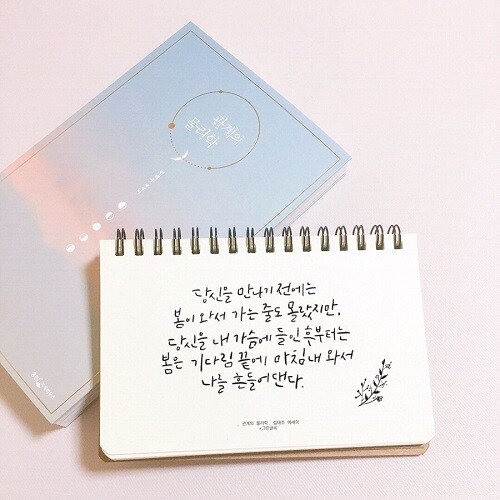 관계의
물리학
당신을 만나기 전에는
봄이 와서 가는 줄도 몰랐지만,
당신을 내 가슴에 들인 후부터는
봄은 기다림 끝에 마침내 와서
나를 흔들어댄다.
관계의 물리학, 림태주 에세이